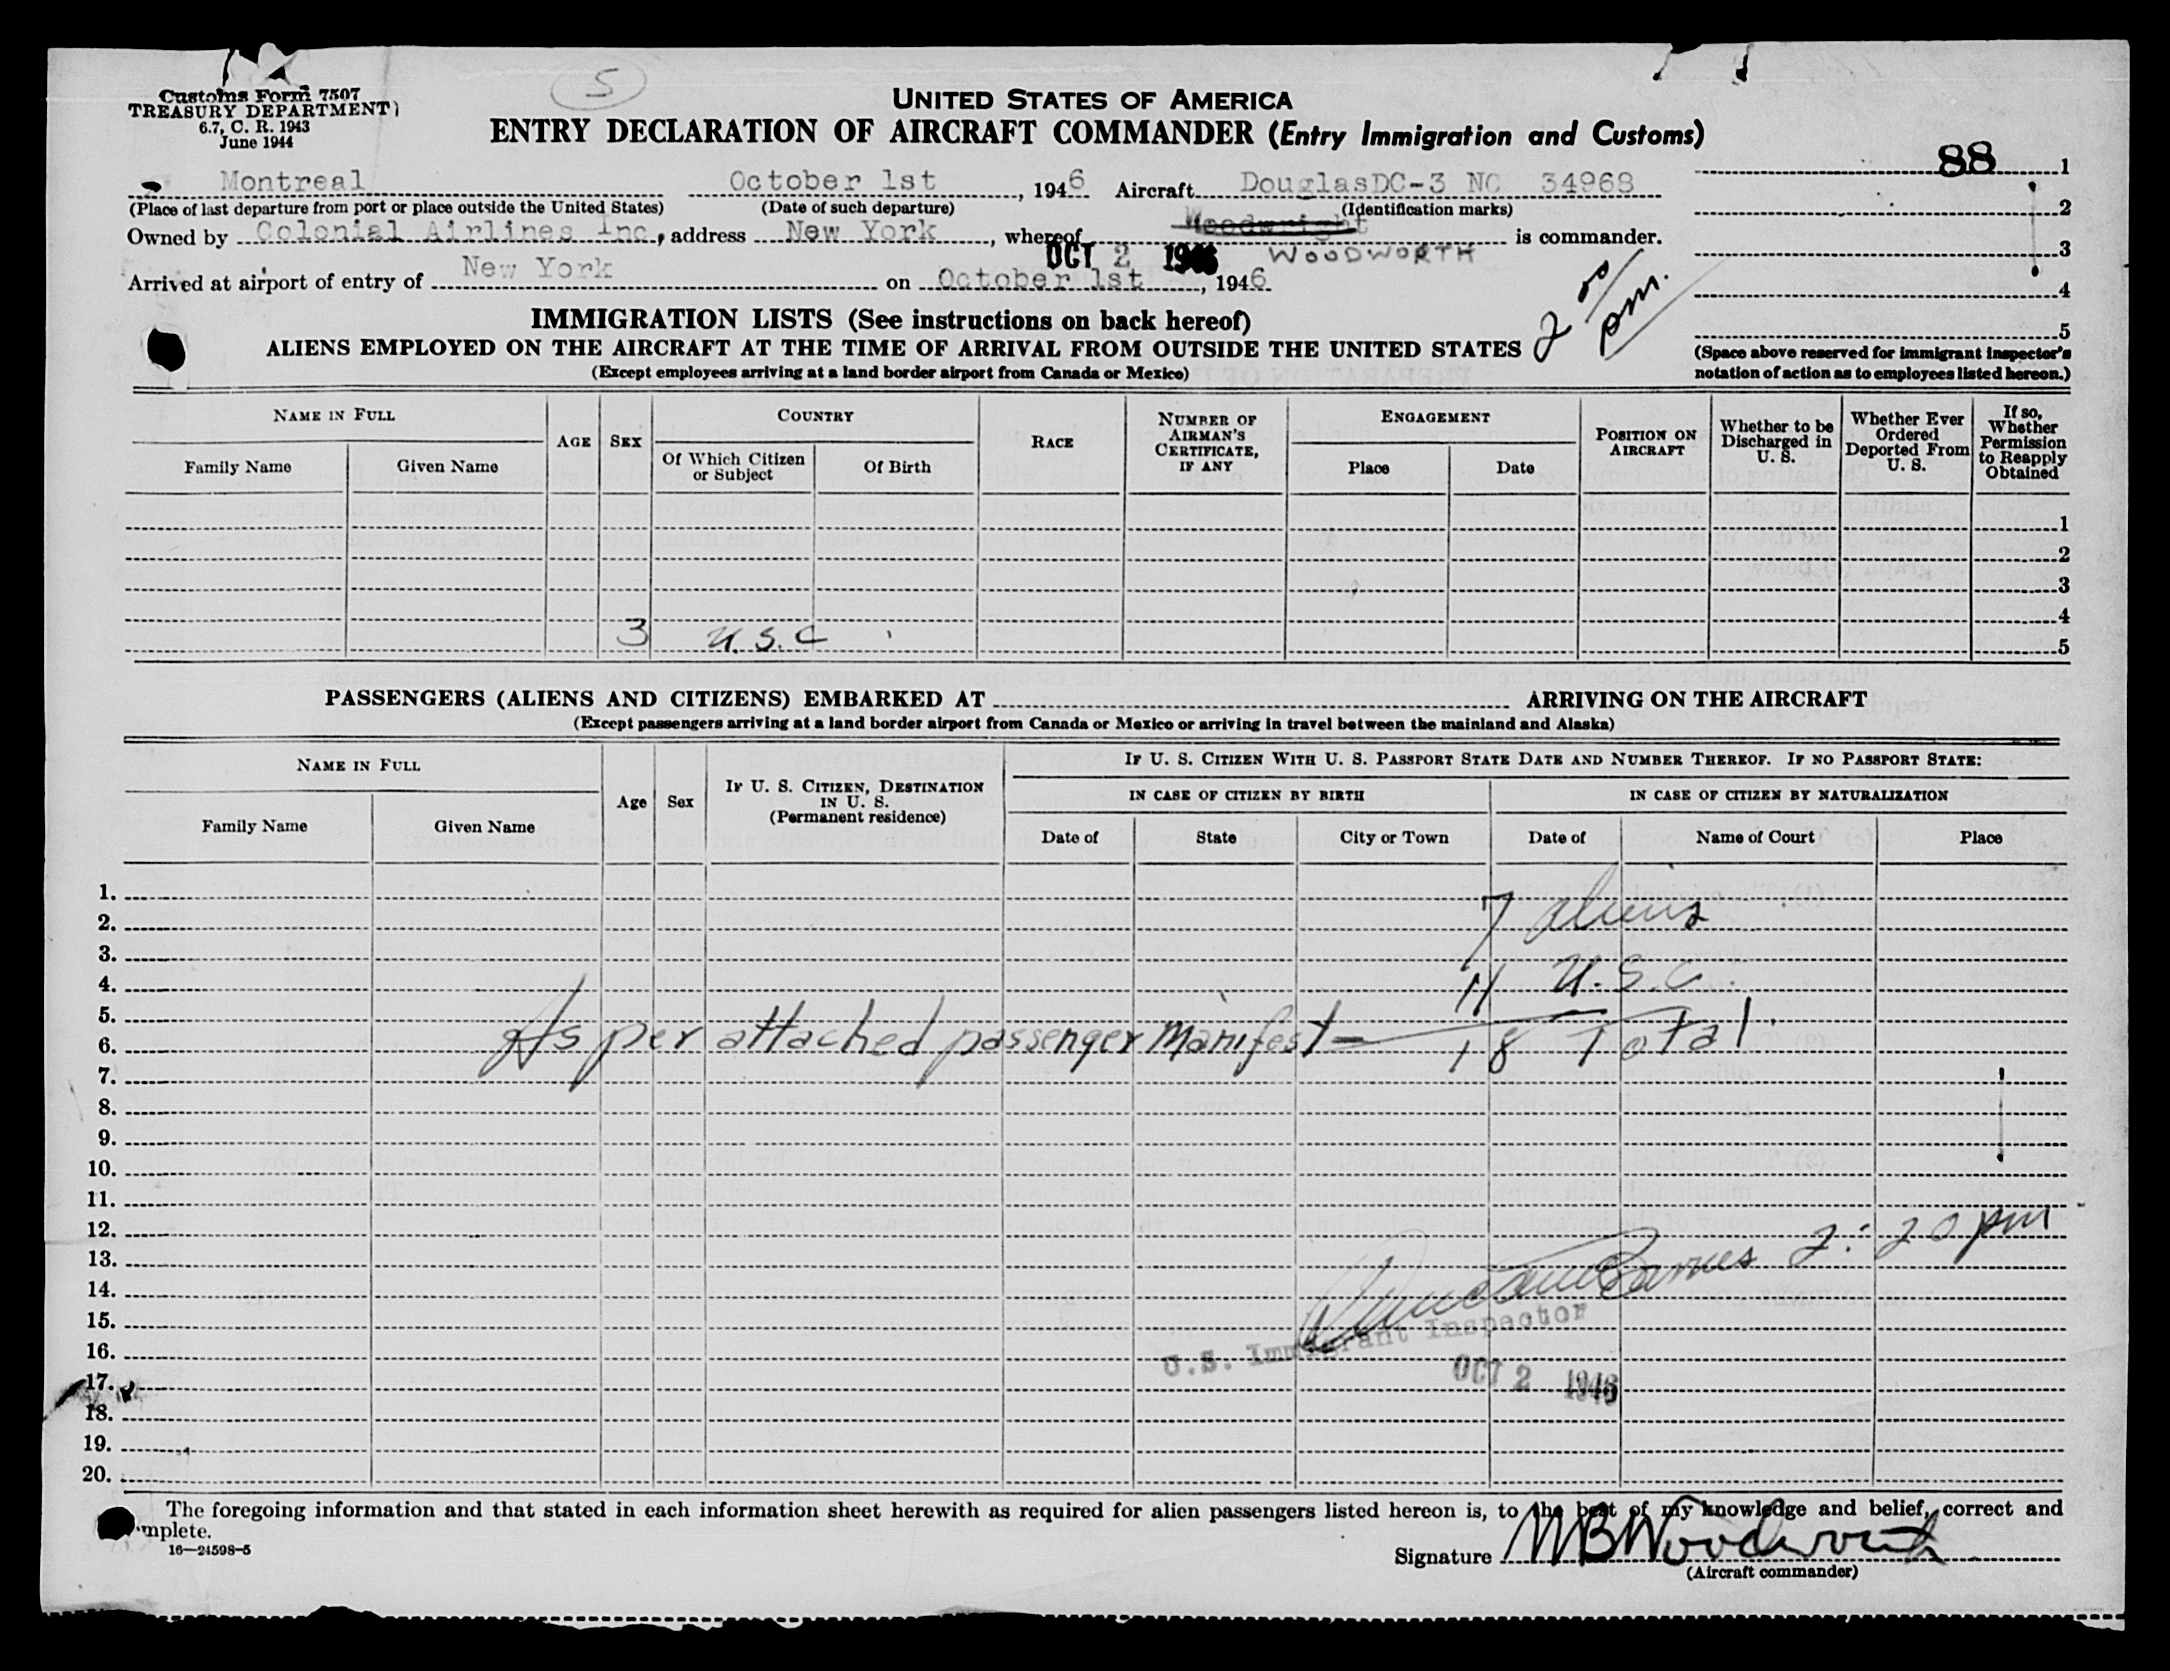 S
Customs Form 7507
TREASURY DEPARTMENT
6.7, C. R. 1943
June 1944
UNITED STATES OF AMERICA
ENTRY DECLARATION OF AIRCRAFT COMMANDER (Entry Immigration and Customs)
88 1
2
3
4
5
(Space above reserved for immigrant inspector's
notation of action as to employees listed hereon.)
Montreal October 1st, 1946 Aircraft DouglasDC-3 NC 34968
(Place of last departure from port or place outside the United States) (Date of such departure) (Identification marks)
Owned by Colonial Airlines Inc, address New York, whereof Woodwright is commander.
OCT 2 1946 WOODWORTH
Arrived at airport of entry of New York on October 1st, 1946
2 00/pm.
IMMIGRATION LISTS (See instructions on back hereof)
ALIENS EMPLOYED ON THE AIRCRAFT AT THE TIME OF ARRIVAL FROM OUTSIDE THE UNITED STATES
(Except employees arriving at a land border airport from Canada or Mexico)
NAME IN FULL
Family Name
Given Name
AGE
SEX
COUNTRY
Of Which Citizen or Subject
Of Birth
RACE
NUMBER OF AIRMAN'S CERTIFICATE, IF ANY
ENGAGEMENT
Place
Date
POSITION ON AIRCRAFT
Whether to be Discharged in U. S.
Whether Ever Ordered Deported From U. S.
If so, Whether Permission to Reapply Obtained
1
2
3
4
3 U.S.C 5
PASSENGERS (ALIENS AND CITIZENS) EMBARKED AT ARRIVING ON THE AIRCRAFT
(Except passengers arriving at a land border airport from Canada or Mexico or arriving in travel between the mainland and Alaska)
NAME IN FULL
Family Name
Given Name
Age
Sex
IF U. S. CITIZEN, DESTINATION IN U. S.
(Permanent residence)
IF U. S. CITIZEN WITH U. S. PASSPORT STATE DATE AND NUMBER THEREOF. IF NO PASSPORT STATE:
IN CASE OF CITIZEN BY BIRTH
IN CASE OF CITIZEN BY NATURALIZATION
Date of
State
City or Town
Date of
Name of Court
Place
1.
2. 7 aliens
3.
4. 11 U.S.C.
5.
6. As per attached passenger manifest - 18 Total
7.
8.
9.
10.
11.
12.
13. Barnes 2:20 pm
14.
15.
16. U.S. Immigrant Inspector
17. OCT 2 1946
18.
19.
20.
The foregoing information and that stated in each information sheet herewith as required for alien passengers listed hereon is, to the best of my knowledge and belief, correct and
mplete.
16—24598-5
Signature MBWoodworth
(Aircraft commander)